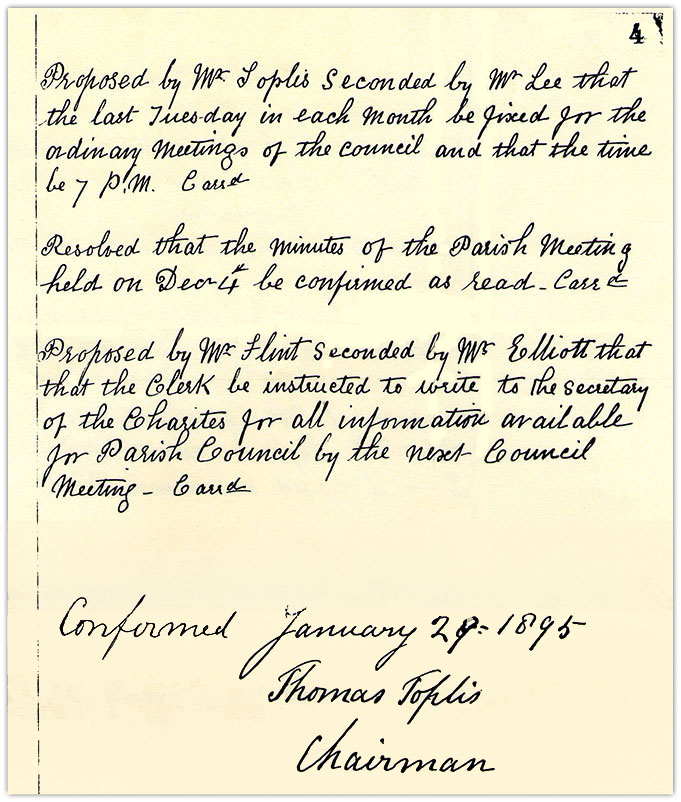 4
Proposed by Mr Toplis Seconded by Mr Lee that
the last Tuesday in each Month be fixed for the
ordinary Meetings of the council and that the time
be 7 P.M. Carrd
Resolved that the minutes of the Parish Meeting
held on Decr 4th be confirmed as read - Carrd
Proposed by Mr Flint Seconded by Mr Elliott that
that the Clerk be instructed to write to the Secretary
of the Charites for all information available
for Parish Council by the next Council
Meeting - Carrd
Confirmed January 29 - 1895
Thomas Toplis
Chairman